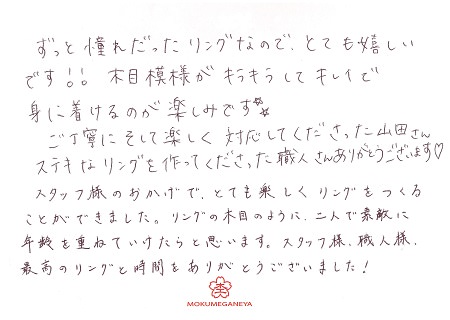 ずっと憧れだったリングなので、とても嬉しい
です!! 木目模様がキラキラしてキレイで
身に着けるのが楽しみです☆☆
ご丁寧にそして楽しく対応してくださった山田さん
ステキなリングを作ってくださった職人さんありがとうございます♡
スタッフ様のおかげで、とても楽しくリングをつくる
ことができました。リングの木目のように、二人で素敵に
年齢を重ねていけたらと思います。スタッフ様、職人様、
最高のリングと時間をありがとうございました!
MOKUMEGANEYA